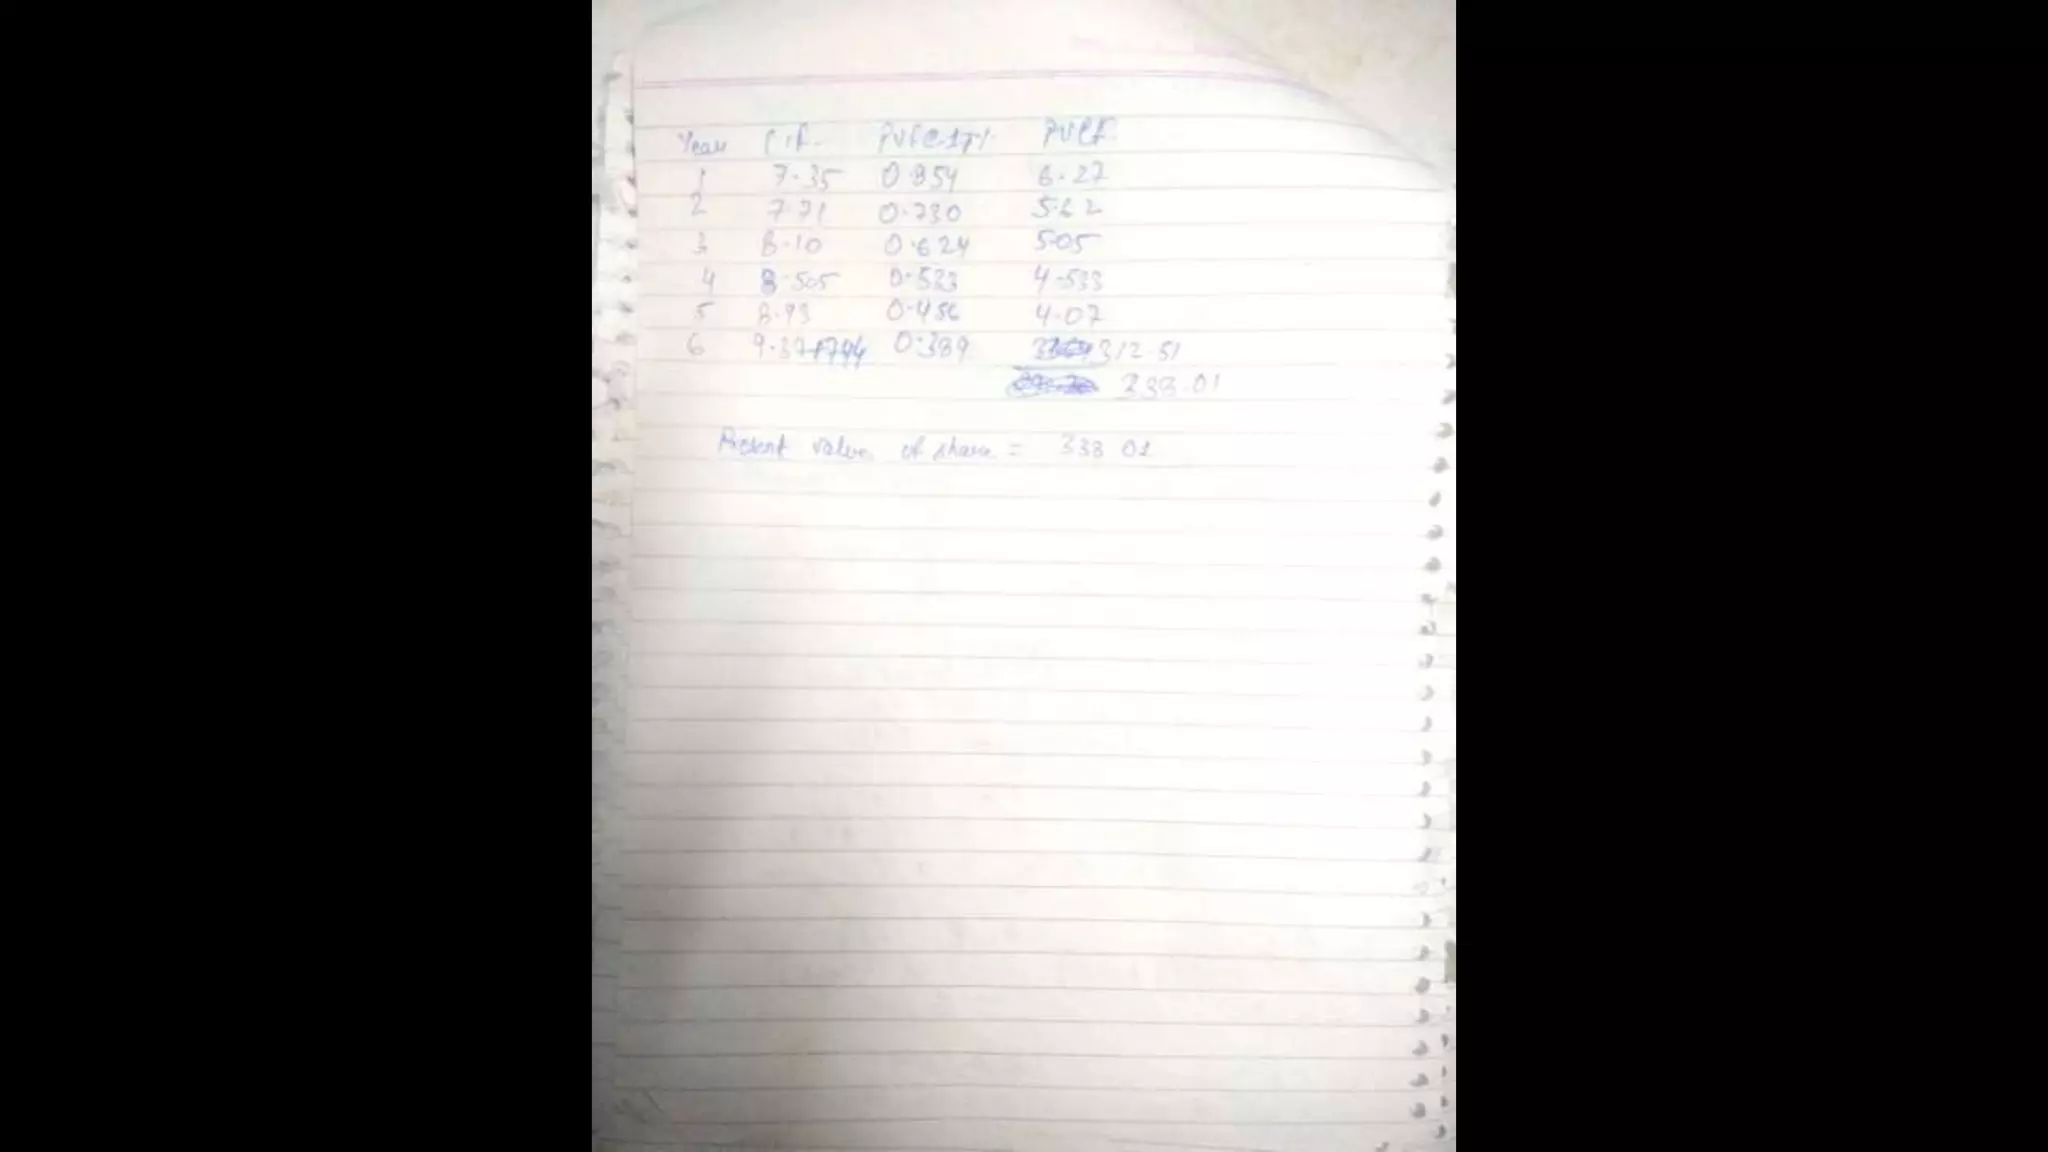 Year C.F. PVF@17% PVCF
1 7.35 0.854 6.27
2 7.71 0.730 5.62
3 8.10 0.624 5.05
4 8.505 0.533 4.533
5 8.93 0.456 4.07
6 9.37+794 0.389 312.51
338.01
Present value of share = 338.01